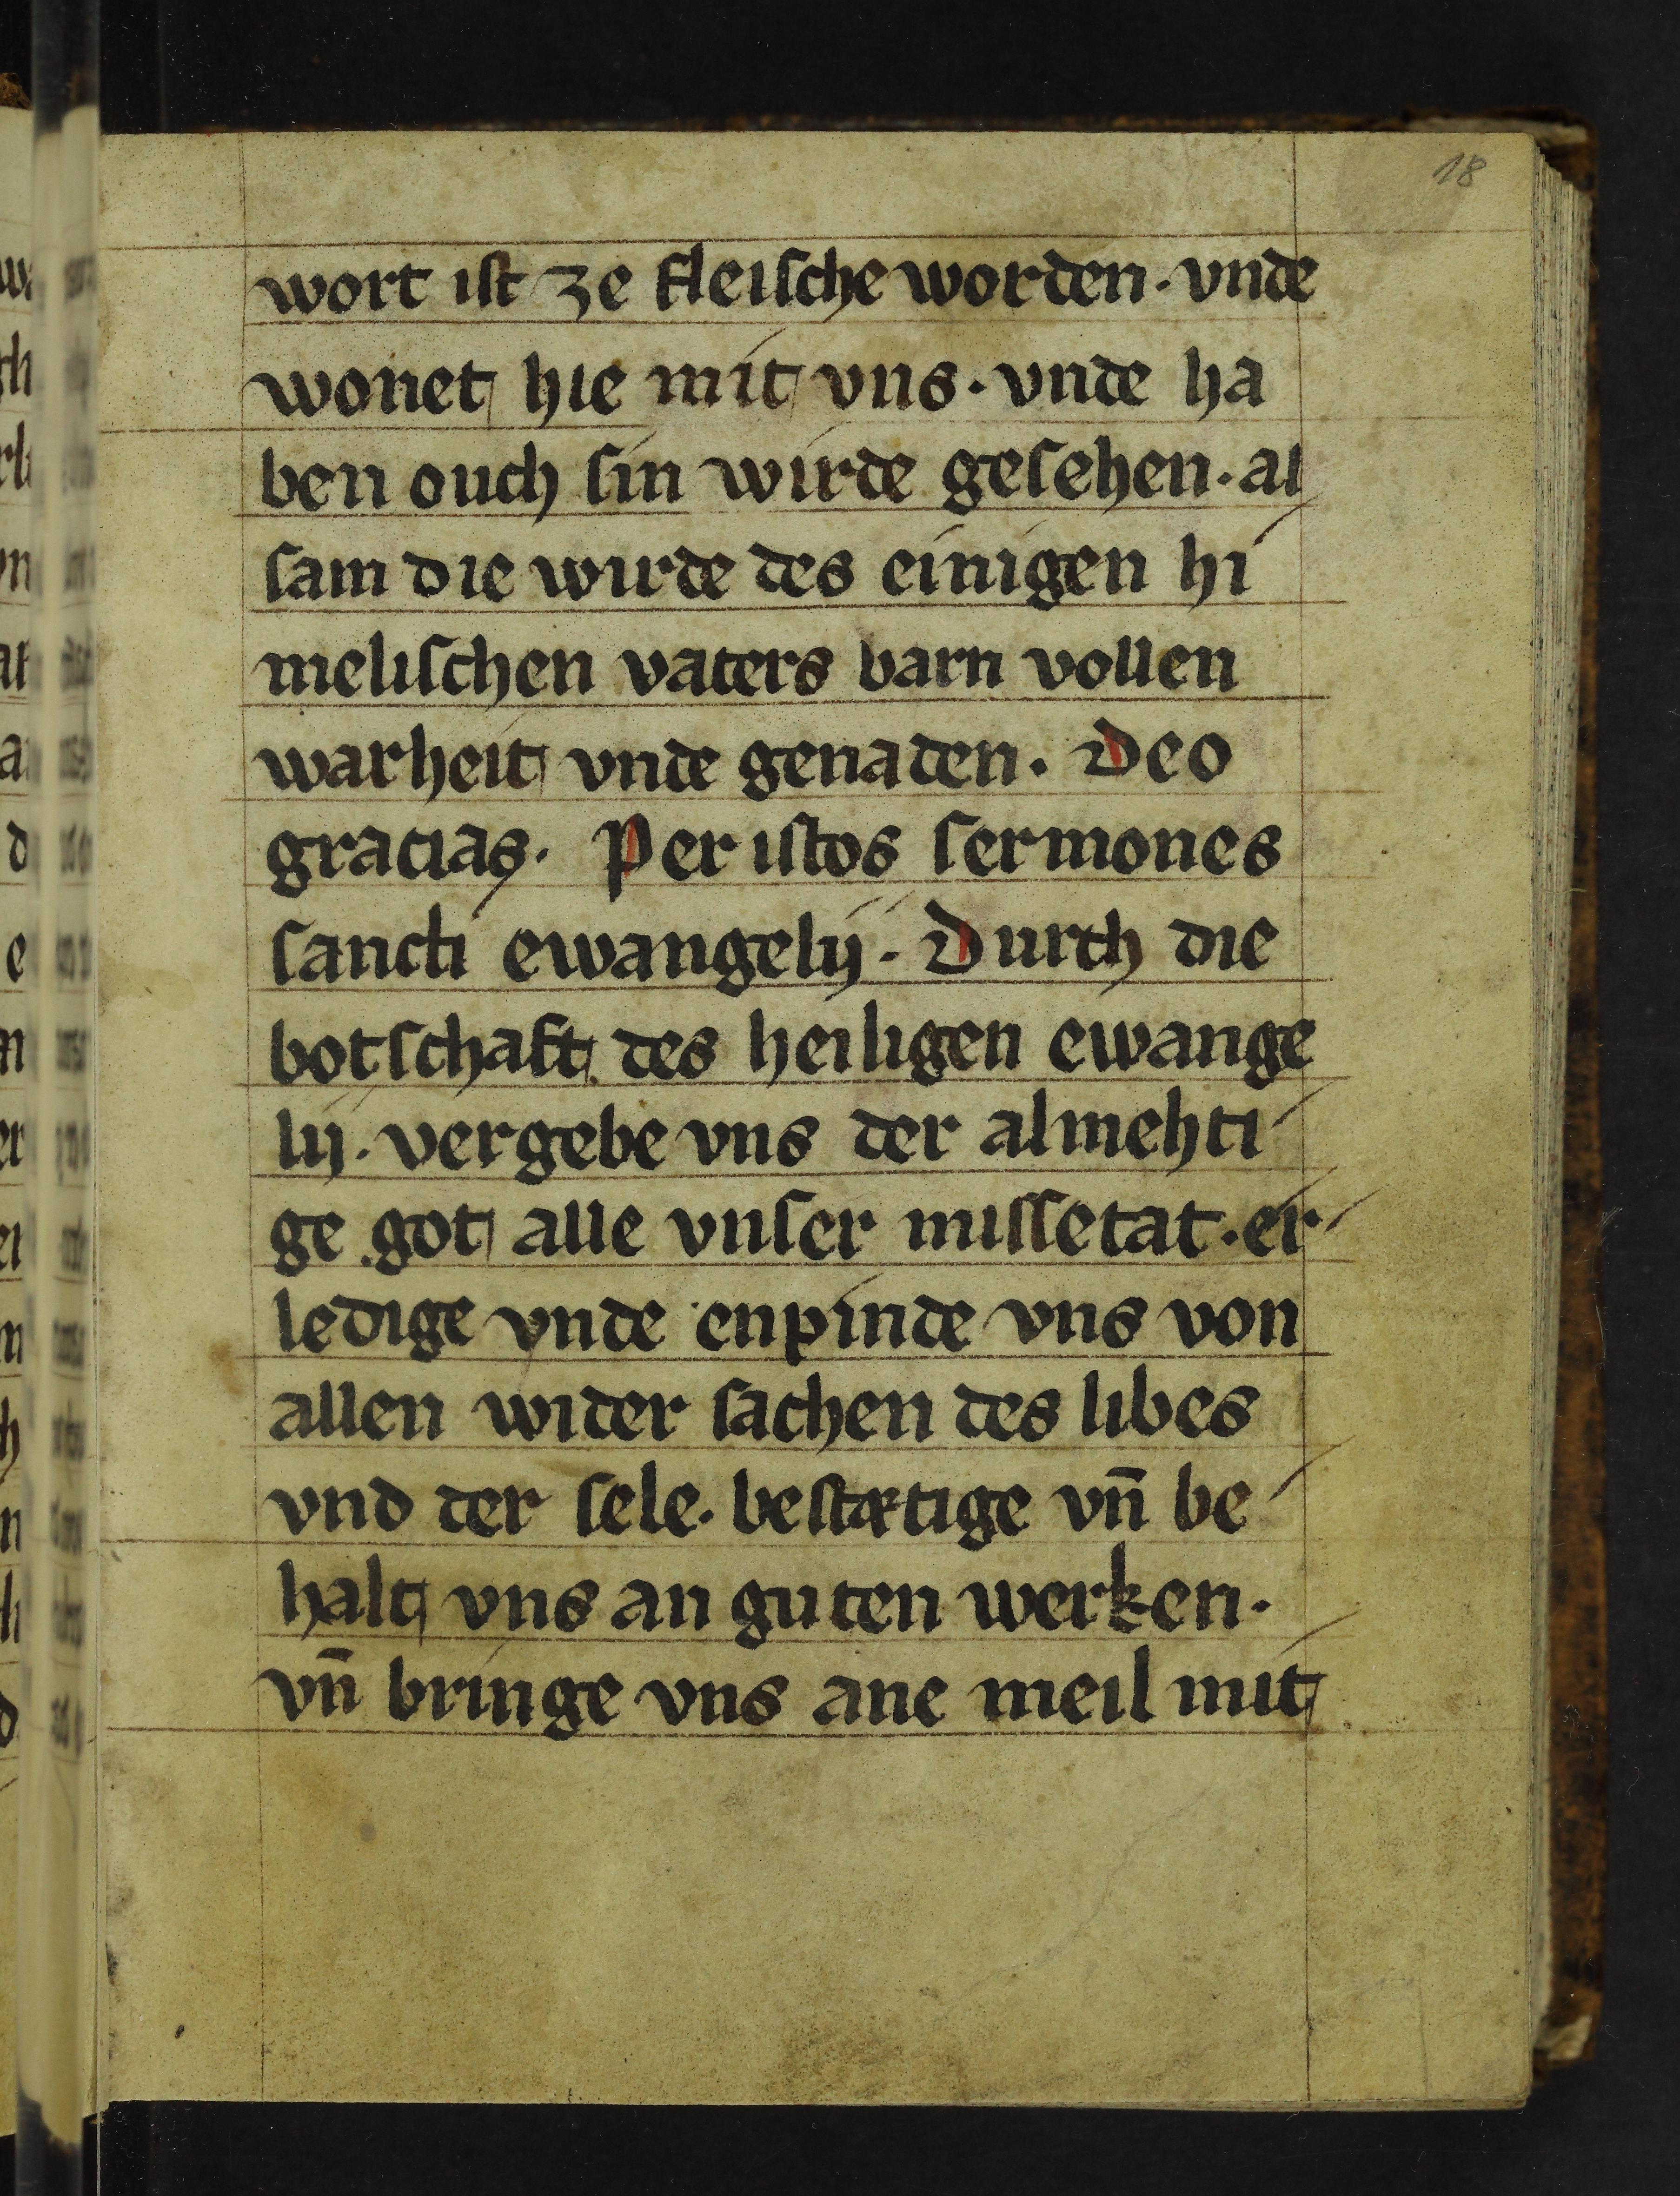 18
wort ist ze fleische worden· vnde
wonet hie mit vns· vnde ha
ben ouch sin wirde gesehen· al
sam die wirde des einigen hi
melischen vaters barn vollen
warheit vnde genaden· Deo
gracias· Per istos sermones
sancti ewangelij· Durch die
botschaft des heiligen ewange
lij· vergebe vns der almehti
ge got alle vnser missetat· er
ledige vnde enpinde vns von
allen wider sachen des libes
vnd der sele· bestætige vn̄ be
halt vns an guten werken·
vn̄ bringe vns ane meil mit